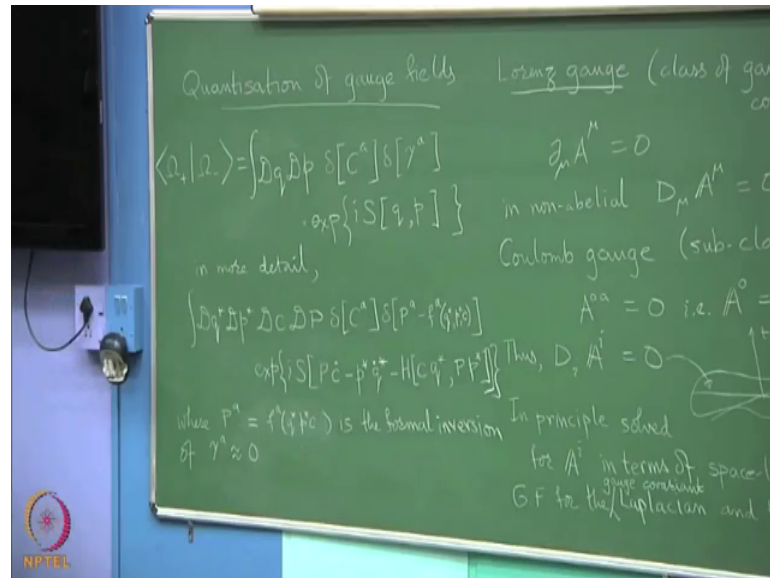 Quantisation of gauge fields
⟨Ω₊|Ω₋⟩ = ∫Dq Dp δ[Cᵃ] δ[γᵃ]
· exp{i S[q, p]}
in more detail,
∫Dq* Dp* DC DP δ[Cᵃ] δ[Pᵃ - fᵃ(q*p*C)]
exp{i S[PĊ - p*q̇* - H[C q*, P p*]]}
where Pᵃ = fᵃ(q*p*C) is the formal inversion
of γᵃ ≈ 0
Lorenz gauge (class of ga
co
∂_μ A^μ = 0
in non-abelial D_μ A^μ = 0
Coulomb gauge (sub-cla
A⁰ᵃ = 0 i.e. A⁰ =
Thus, D_i A^i = 0
t
In principle solved
for A^i in terms of space-l
gauge
G.F for the Laplacian and
NPTEL